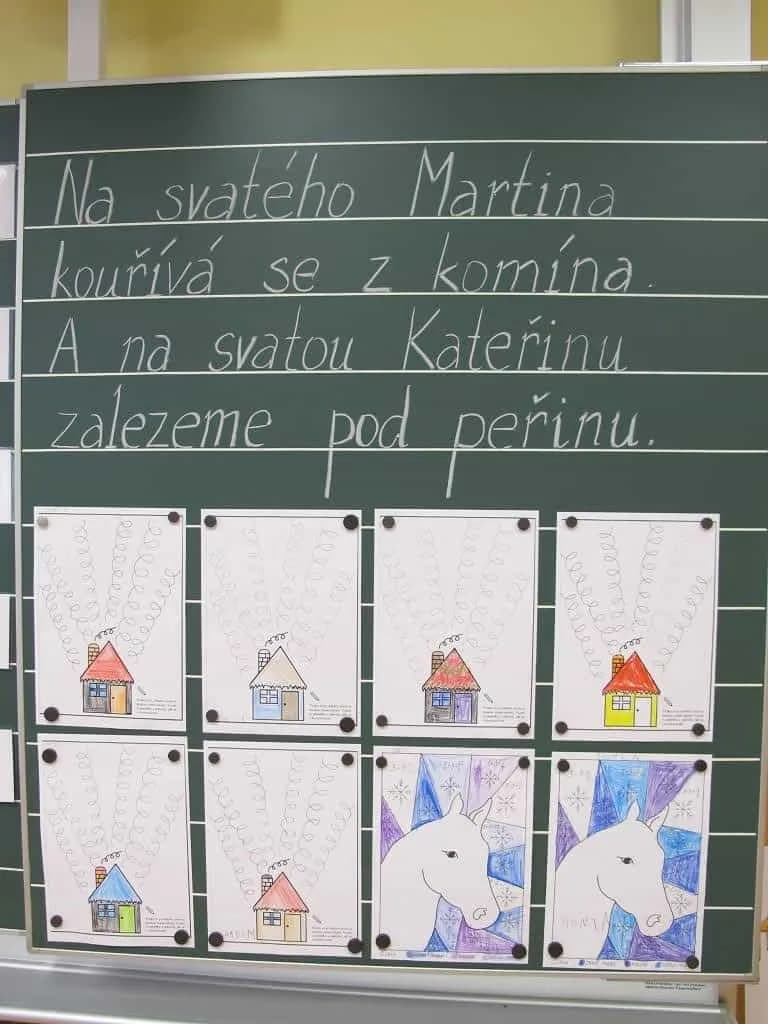 Na svatého Martina
kouřívá se z komína.
A na svatou Kateřinu
zalezeme pod peřinu.